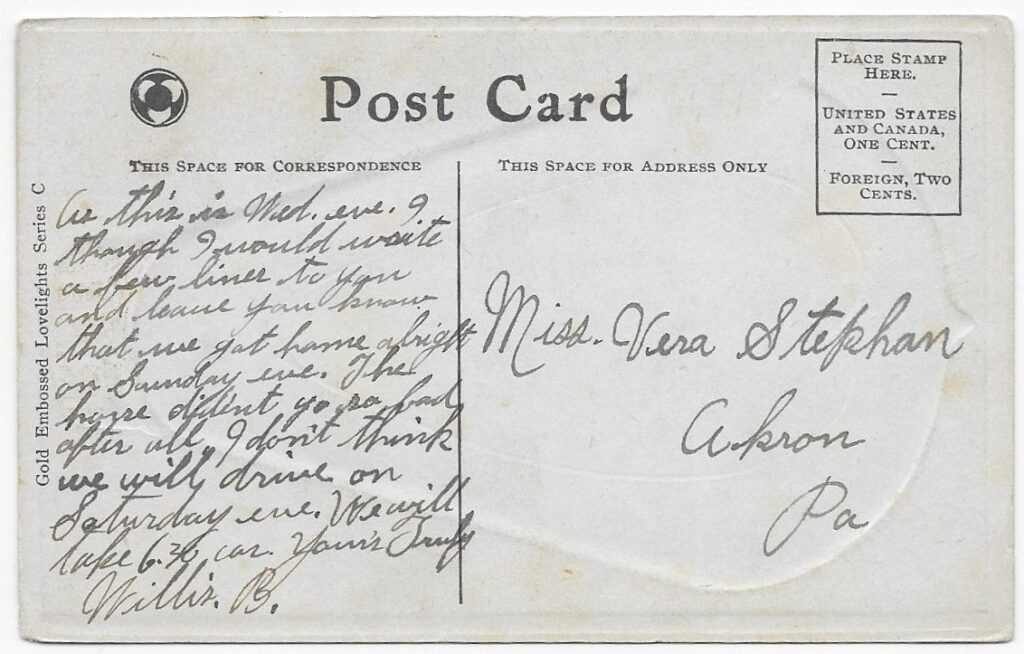 Post Card
PLACE STAMP
HERE.
UNITED STATES
AND CANADA,
ONE CENT.
FOREIGN, TWO
CENTS.
THIS SPACE FOR CORRESPONDENCE
THIS SPACE FOR ADDRESS ONLY
Gold Embossed Lovelights Series C
As this is Wed. eve. I
though I would write
a few lines to you
and leave you know
that we got home alright
on Sunday eve. The
horse didént go so bad
after all. I don't think
we will drive on
Saturday eve. We will
take 6.30 car. Your's Truly
Willis. B.
Miss. Vera Stephan
Akron
Pa